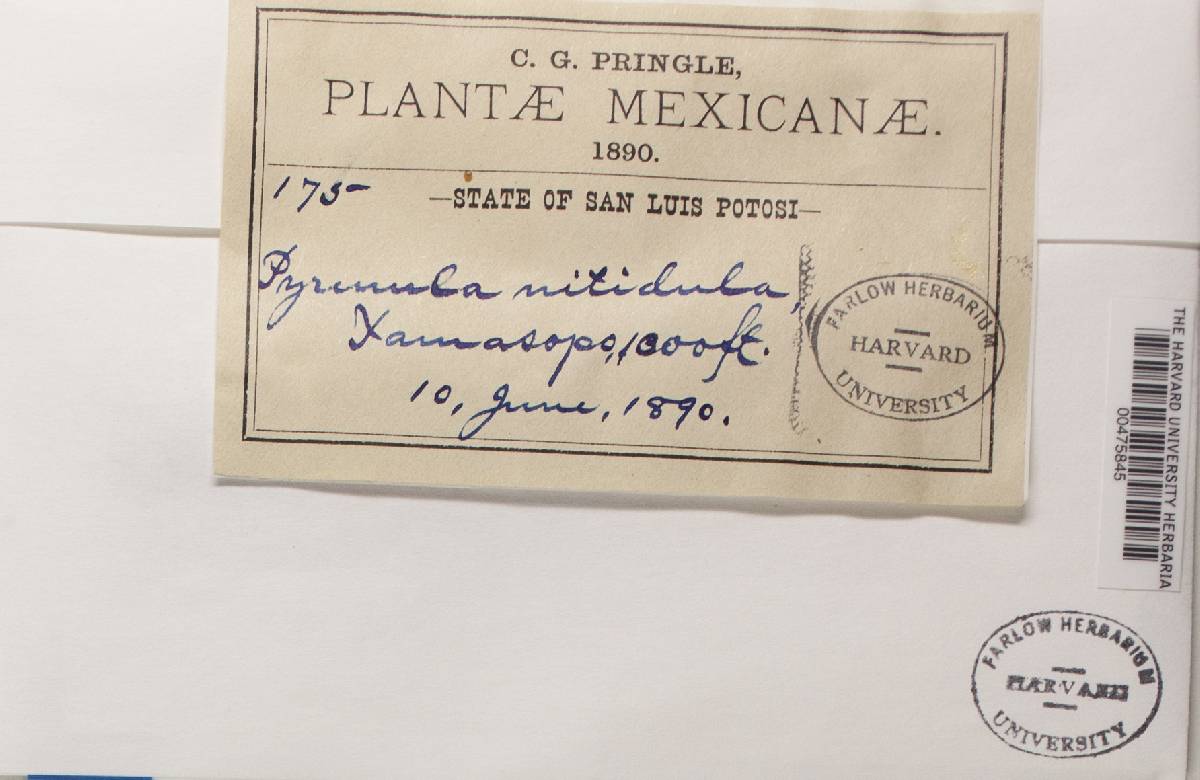 C. G. PRINGLE,
PLANTÆ MEXICANÆ.
1890.
175
—STATE OF SAN LUIS POTOSI—
Pyrenula nitidula,
Xamasopo, 1000 ft.
10, June, 1890.
FARLOW HERBARIUM
HARVARD
UNIVERSITY
THE HARVARD UNIVERSITY HERBARIA
00475845
FARLOW HERBARIUM
HARVARD
UNIVERSITY